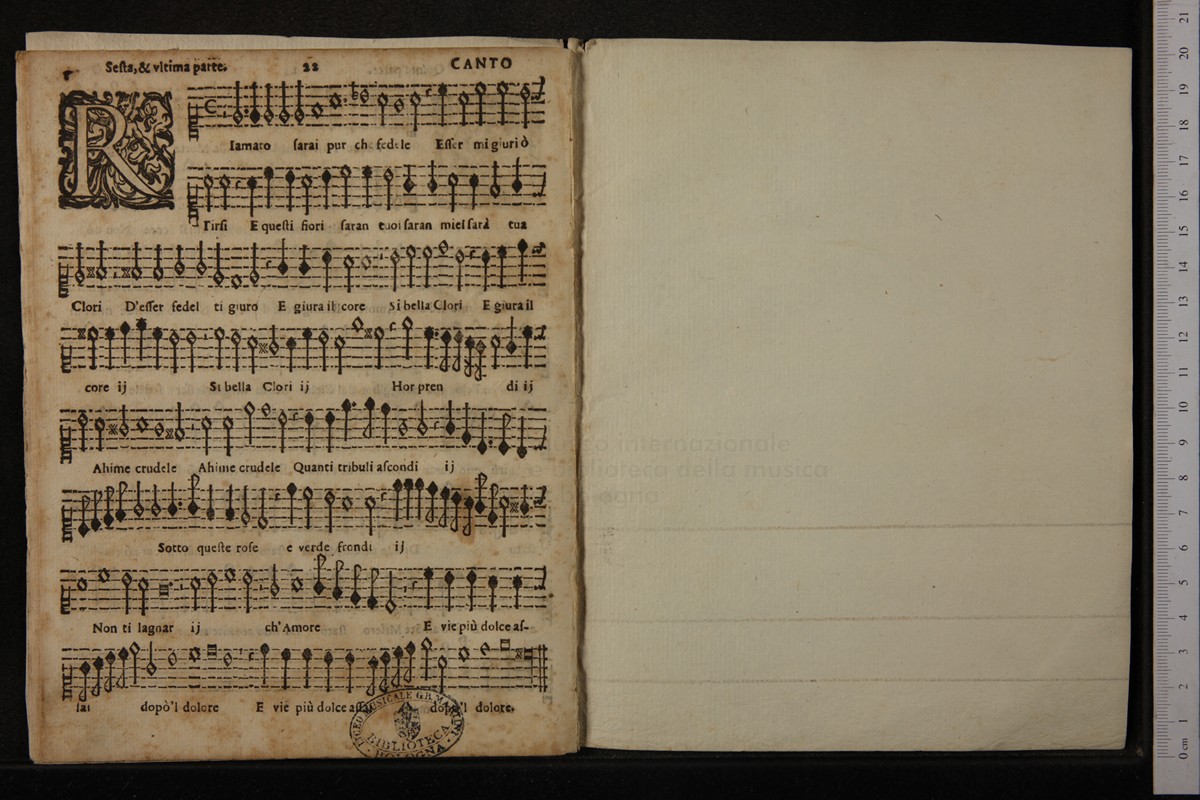 Sesta, & vltima parte. 22 CANTO
R
Iamato sarai pur che fedele Esser mi giuri ò
Tirsi E questi fiori saran tuoi saran miei sarà tua
Clori D'esser fedel ti giuro E giura il core Si bella Clori E giura il
core ij Si bella Clori ij Hor pren di ij
Ahime crudele Ahime crudele Quanti tribuli ascondi ij
Sotto queste rose e verde frondi ij
Non ti lagnar ij ch'Amore E vie più dolce as-
sai dopò'l dolore E vie più dolce dopò'l dolore.
LICEO MUSICALE G.B. MARTINI
BIBLIOTECA
BOLOGNA
museo internazionale
e biblioteca della musica
di bologna
0 cm 1 2 3 4 5 6 7 8 9 10 11 12 13 14 15 16 17 18 19 20 21